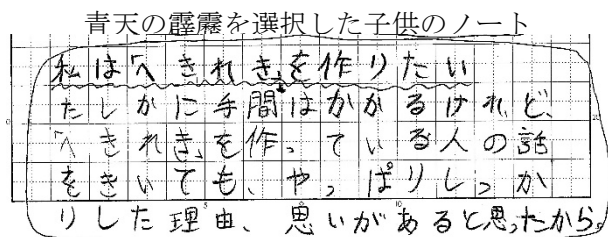 青天の霹靂を選択した子供のノート
私は「へきれき」を作りたい
たしかに手間はかかるけれど、
「へきれき」を作っている人の話
をきいても、やっぱりしっか
りした理由、思いがあると思ったから。